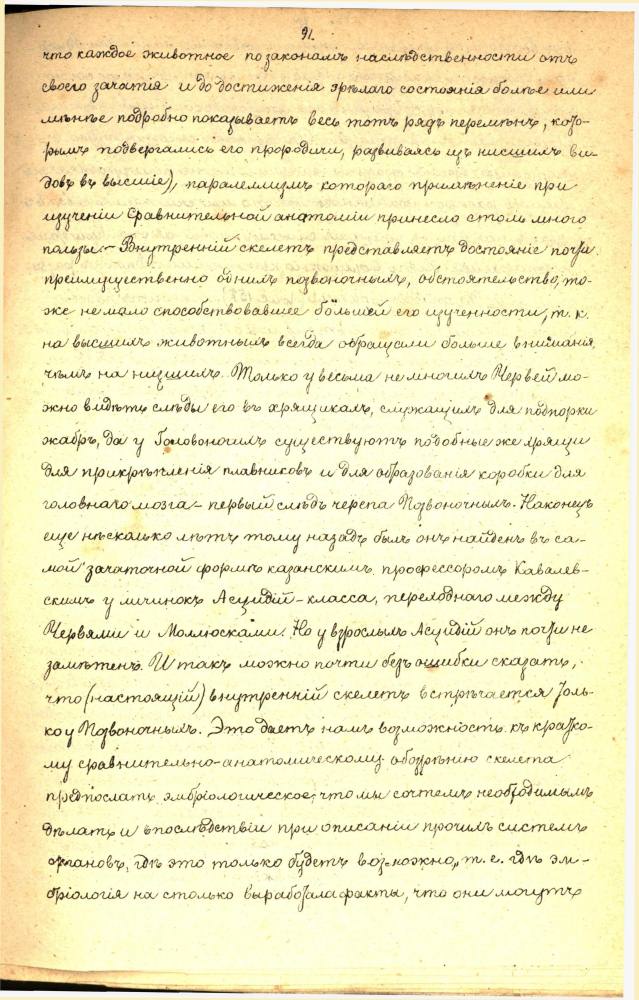 91.
что каждое животное по законамъ наслѣдственности отъ
своего зачатія и до достиженія зрѣлаго состоянія болѣе или
менѣе подробно показываетъ весь тотъ рядъ перемѣнъ, кото-
рымъ подвергались его прородичи, развиваясь изъ нисшихъ ви-
довъ въ высшіе), паралеллизмъ котораго примѣненіе при
изученіи Сравнительной анатоміи принесло столь много
пользы. – Внутренній скелетъ представляетъ достояніе почти
преимущественно однихъ позвоночныхъ, обстоятельство, то-
же не мало способствовавшее бо́льшей его изученности, т. к.
на высшихъ животныхъ всегда обращали больше вниманія,
чѣмъ на низшихъ. Только у весьма не многихъ Червей мо-
жно видѣть слѣды его въ хрящикахъ, служащихъ для подпорки
жабръ, да у Головоногихъ существуютъ подобные же хрящи
для прикрѣпленія плавниковъ и для образованія коробки для
головнаго мозга – первый слѣдъ черепа Позвоночныхъ. Наконецъ
еще нѣсколько лѣтъ тому назадъ былъ онъ найденъ въ са-
мой зачаточной формѣ казанскимъ профессоромъ Кавалев-
скимъ у личинокъ Асцидій – класса, переходнаго между
Червями и Моллюсками. Но у взрослыхъ Асцидій онъ почти не
замѣтенъ. И такъ можно почти безъ ошибки сказать,
что (настоящій) внутренній скелетъ встрѣчается толь-
ко у Позвоночныхъ. Это даетъ намъ возможность къ кратко-
му сравнительно-анатомическому обозрѣнію скелета
предпослать эмбріологическое, что мы сочтемъ необходимымъ
дѣлать и впослѣдствіи при описаніи прочихъ системъ
органовъ, гдѣ это только будетъ возможно, т. е. гдѣ эм-
бріологія на столько выработала факты, что они могутъ